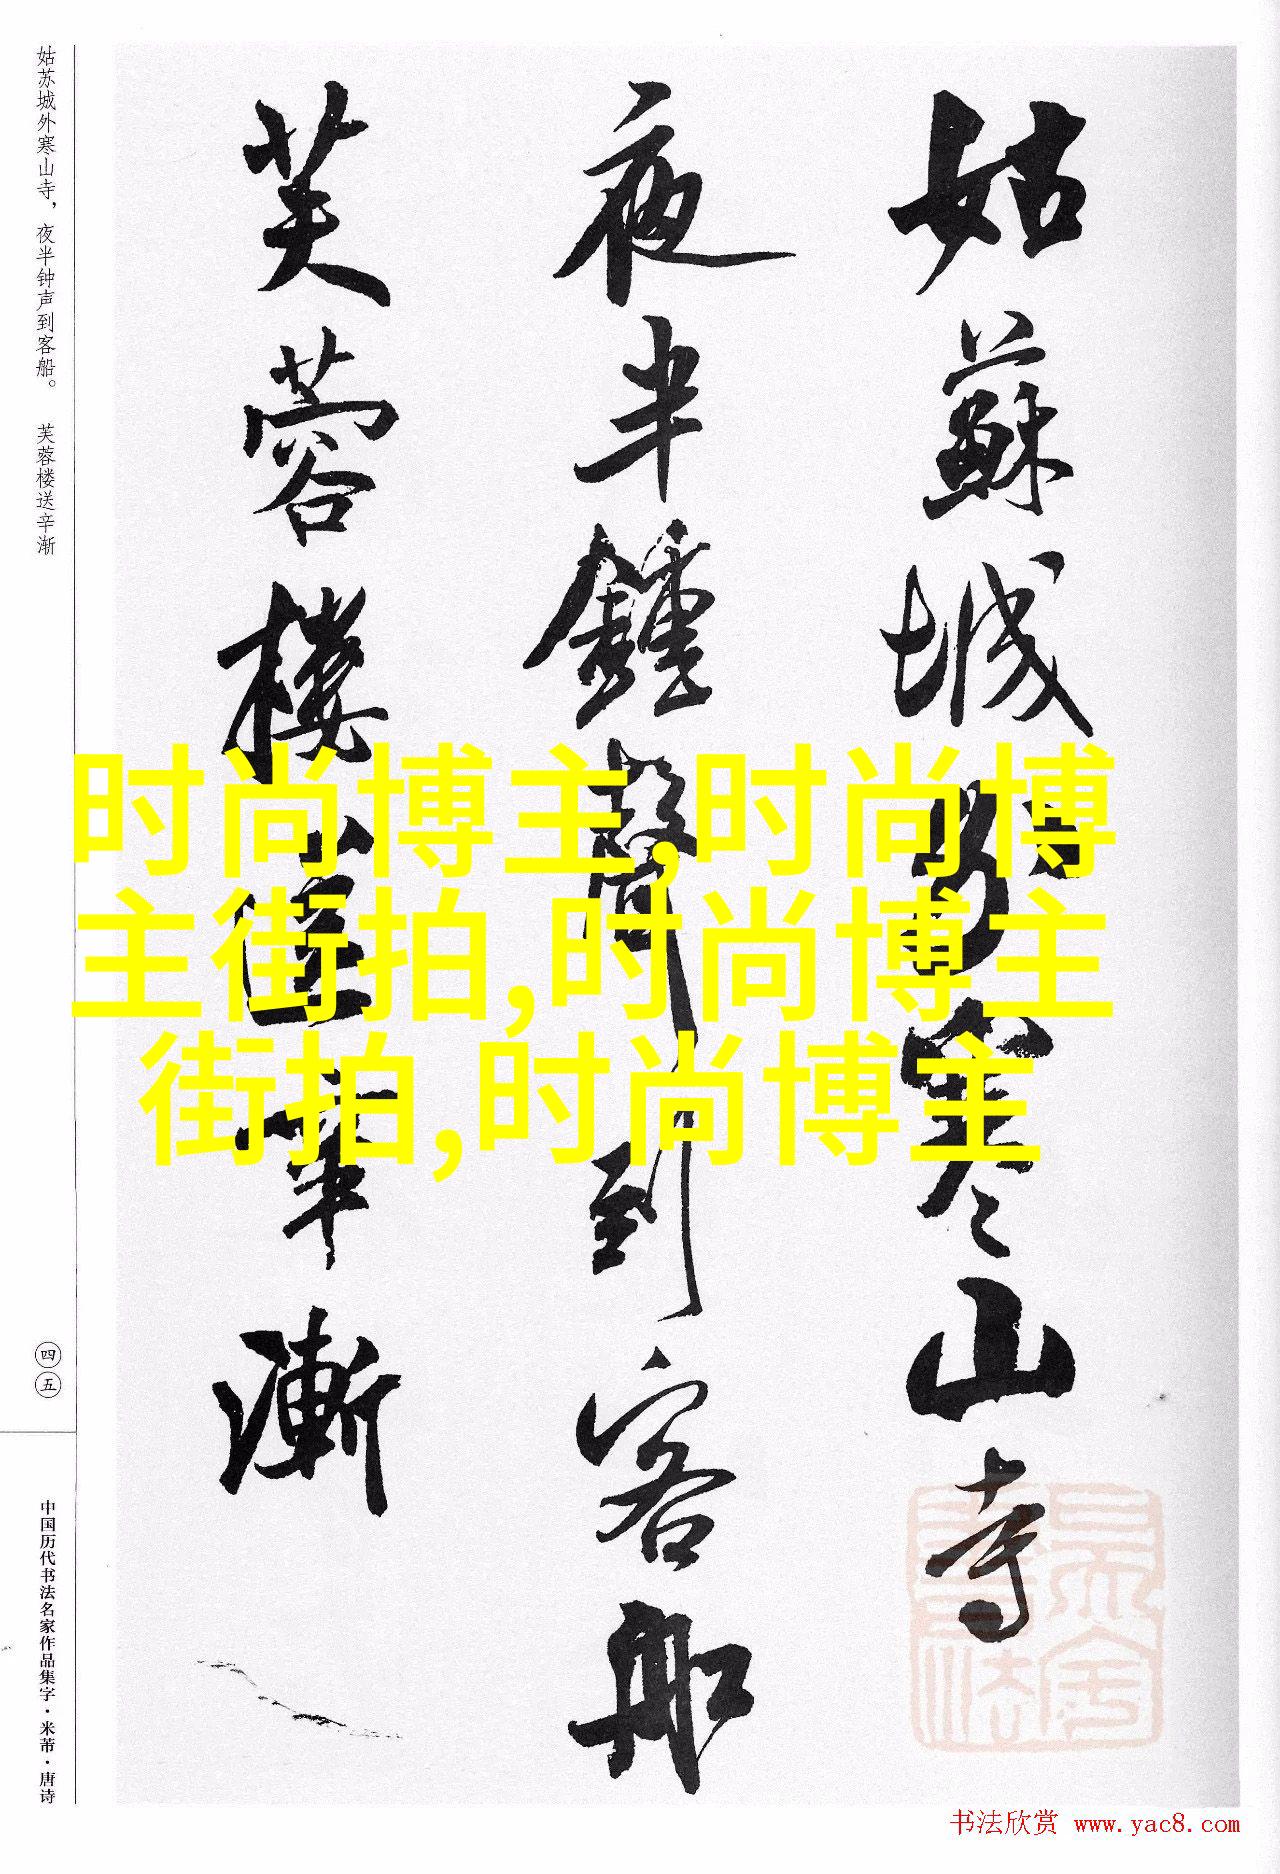 姑蘇城外寒山寺
夜半鍾聲到客船
芙蓉樓送辛漸
姑苏城外寒山寺，夜半钟声到客船。 芙蓉楼送辛渐
四五
中国历代书法名家作品集字·米芾·唐诗
时尚博主,时尚博
主街拍,时尚博主
街拍,时尚博主
书法欣赏 www.yac8.com